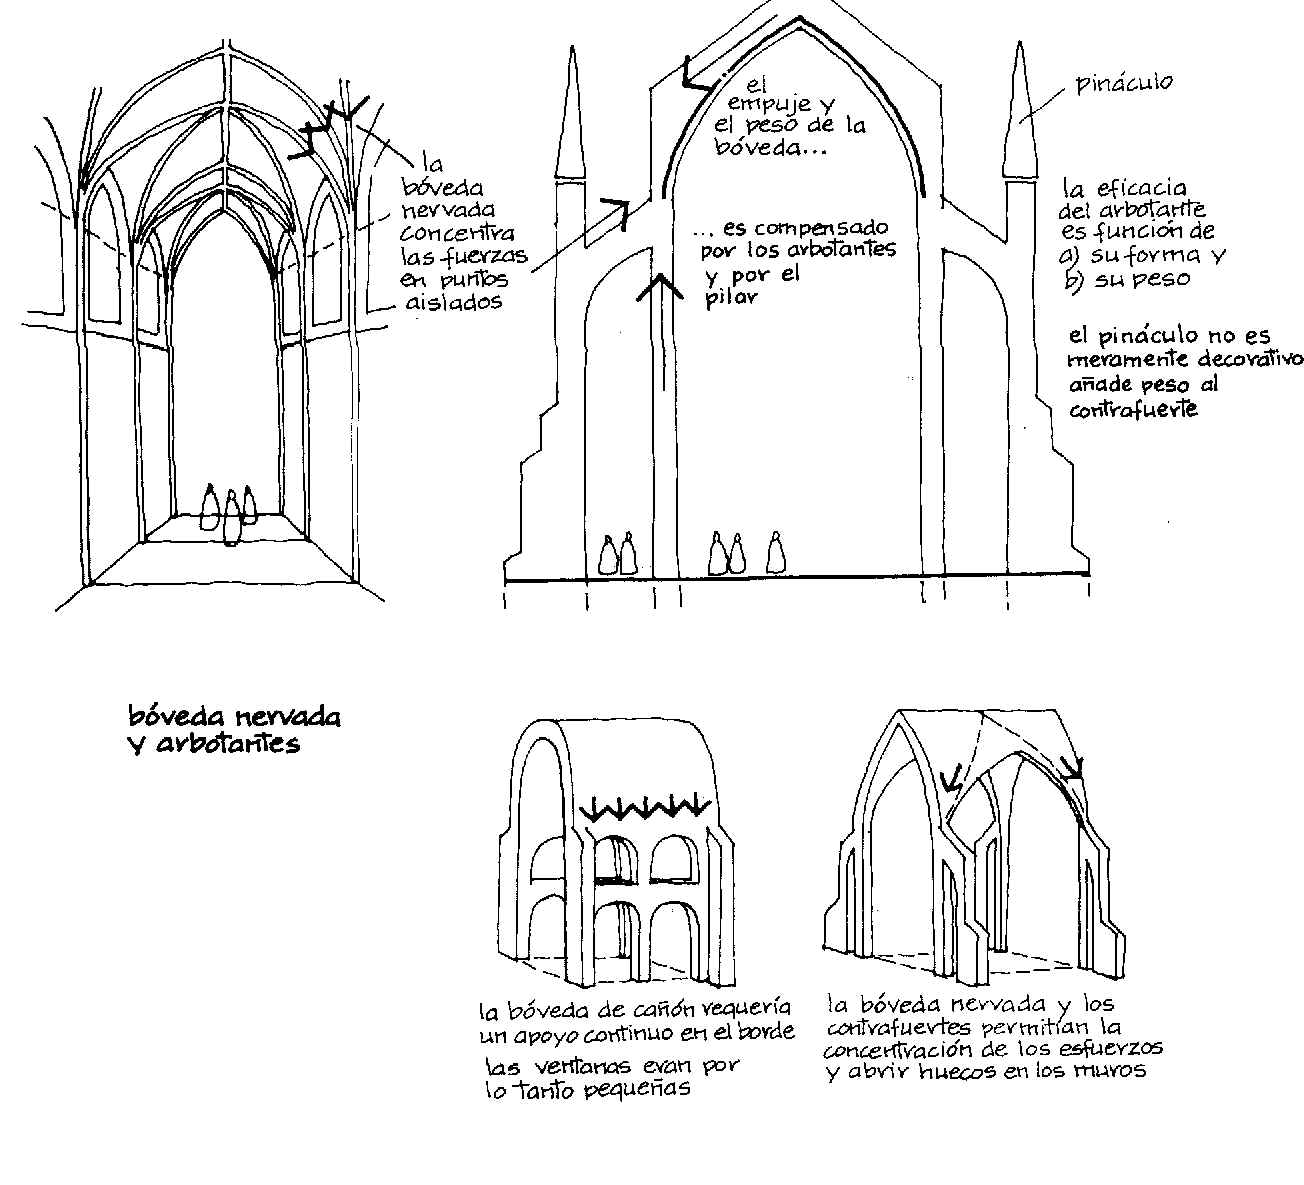 la
bóveda
nervada
concentra
las fuerzas
en puntos
aislados
el
empuje y
el peso de la
bóveda...
... es compensado
por los arbotantes
y por el
pilar
pináculo
la eficacia
del arbotante
es función de
a) su forma y
b) su peso
el pináculo no es
meramente decorativo
añade peso al
contrafuerte
bóveda nervada
y arbotantes
la bóveda de cañón requería
un apoyo continuo en el borde
las ventanas eran por
lo tanto pequeñas
la bóveda nervada y los
contrafuertes permitían la
concentración de los esfuerzos
y abrir huecos en los muros